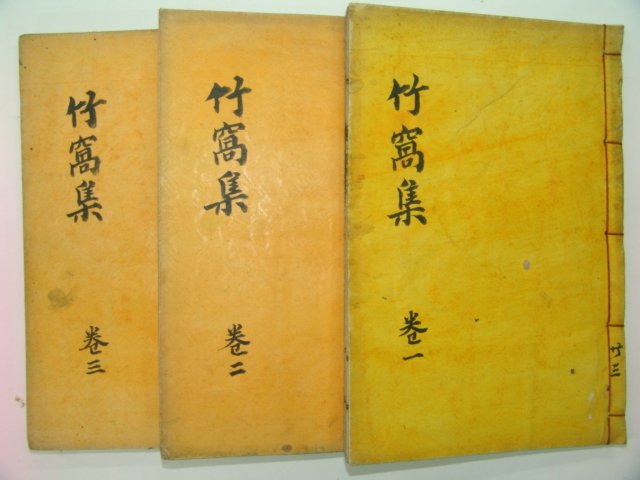 竹窩集
卷一
竹窩集
卷二
竹窩集
卷三